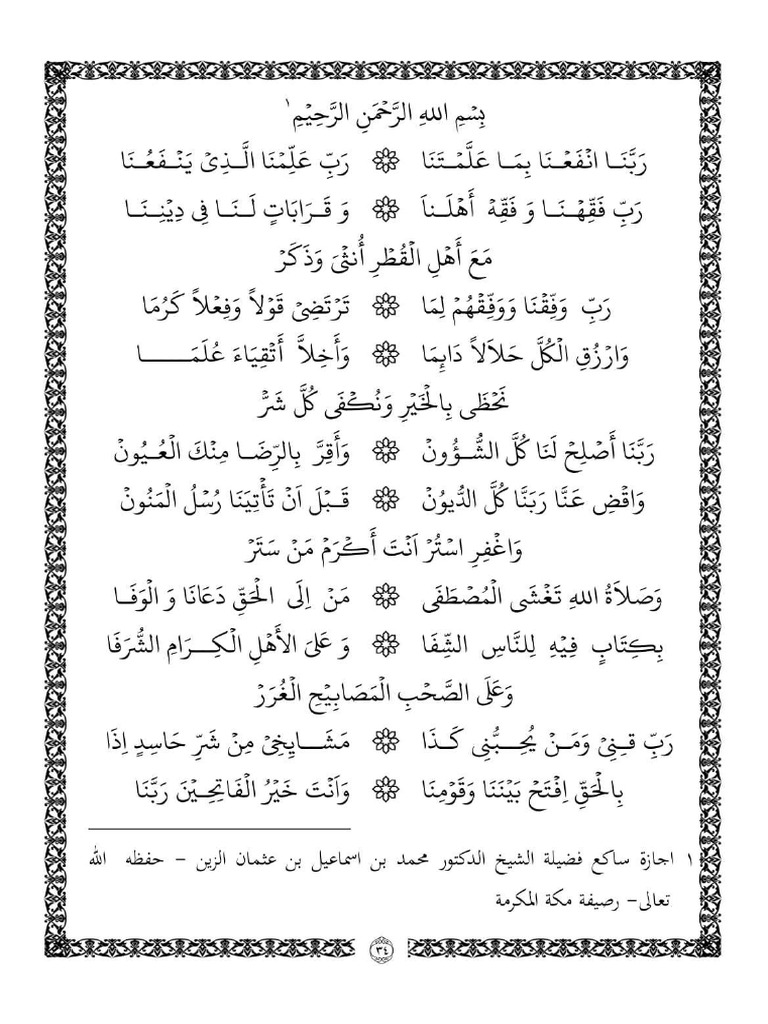 بِسْمِ اللهِ الرَّحْمَنِ الرَّحِيْمِ ١
رَبَّنَا انْفَعْنَا بِمَا عَلَّمْتَنَا ۞ رَبِّ عَلِّمْنَا الَّذِيْ يَنْفَعُنَا
رَبِّ فَقِّهْنَا وَ فَقِّهْ أَهْلَناَ ۞ وَ قَرَابَاتٍ لَنَا فِى دِيْنِنَا
مَعَ أَهْلِ الْقُطْرِ أُنْثَى وَذَكَرْ
رَبِّ وَفِّقْنَا وَوَفِّقْهُمْ لِمَا ۞ تَرْتَضِيْ قَوْلاً وَفِعْلاً كَرُمَا
وَارْزُقِ الْكُلَّ حَلاَلاً دَائِمَا ۞ وَأَخِلاَّ أَتْقِيَاءَ عُلَمَا
نَحْظَى بِالْخَيْرِ وَنُكْفَى كُلَّ شَرّْ
رَبَّنَا أَصْلِحْ لَنَا كُلَّ الشُّؤُونْ ۞ وَأَقِرَّ بِالرِّضَا مِنْكَ الْعُيُونْ
وَاقْضِ عَنَّا رَبَنَّا كُلَّ الدُّيوُنْ ۞ قَبْلَ اَنْ تَأْتِيَنَا رُسْلُ الْمَنُونْ
وَاغْفِرِ اسْتُرْ اَنْتَ أَكْرَمْ مَنْ سَتَرْ
وَصَلاَةُ اللهِ تَغْشَى الْمُصْطَفَى ۞ مَنْ اِلَى الْحَقِّ دَعَانَا وَ الْوَفَا
بِكِتَابٍ فِيْهِ لِلنَّاسِ الشِّفَا ۞ وَ عَلىَ الأَهْلِ الْكِرَامِ الشُّرَفَا
وَعَلَى الصَّحْبِ الْمَصَابِيْحِ الْغُرَرْ
رَبِّ قِنِيْ وَمَنْ يُحِبُّنِى كَذَا ۞ مَشَايِخِيْ مِنْ شَرِّ حَاسِدٍ اِذَا
بِالْحَقِّ اِفْتَحْ بَيْنَنَا وَقَوْمِنَا ۞ وَاَنْتَ خَيْرُ الْفَاتِحِيْنَ رَبَّنَا
١ اجازة ساكع فضيلة الشيخ الدكتور محمد بن اسماعيل بن عثمان الزين – حفظه الله
تعالى– رصيفة مكة المكرمة
٣٤